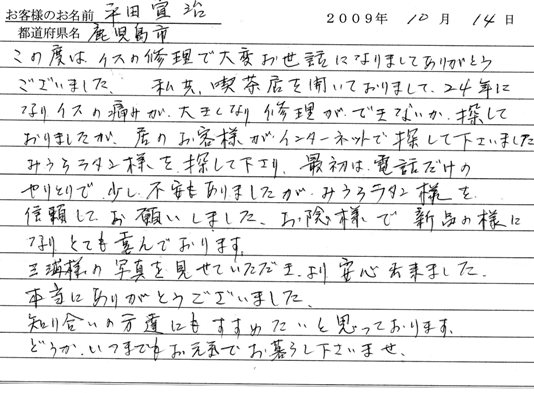 お客様のお名前 平田宣治 2009年 10月 14日
都道府県名 鹿児島市
この度は、イスの修理で大変お世話になりましてありがとう
ございました。 私共、喫茶店を開いておりまして、24年に
なりイスの痛みが、大きくなり修理ができないか、探して
おりましたが、店のお客様がインターネットで探して下さいました
みうらラタン様を探して下さり、最初は、電話だけの
やりとりで、少し不安もありましたが、みうらラタン様を
信頼してお願いしました。お陰様で新品の様に
なりとても喜んでおります。
三浦様の写真を見せていただき、より安心出来ました。
本当にありがとうございました。
知り合いの方達にもすすめたいと思っております。
どうか、いつまでもお元気でお暮らし下さいませ。